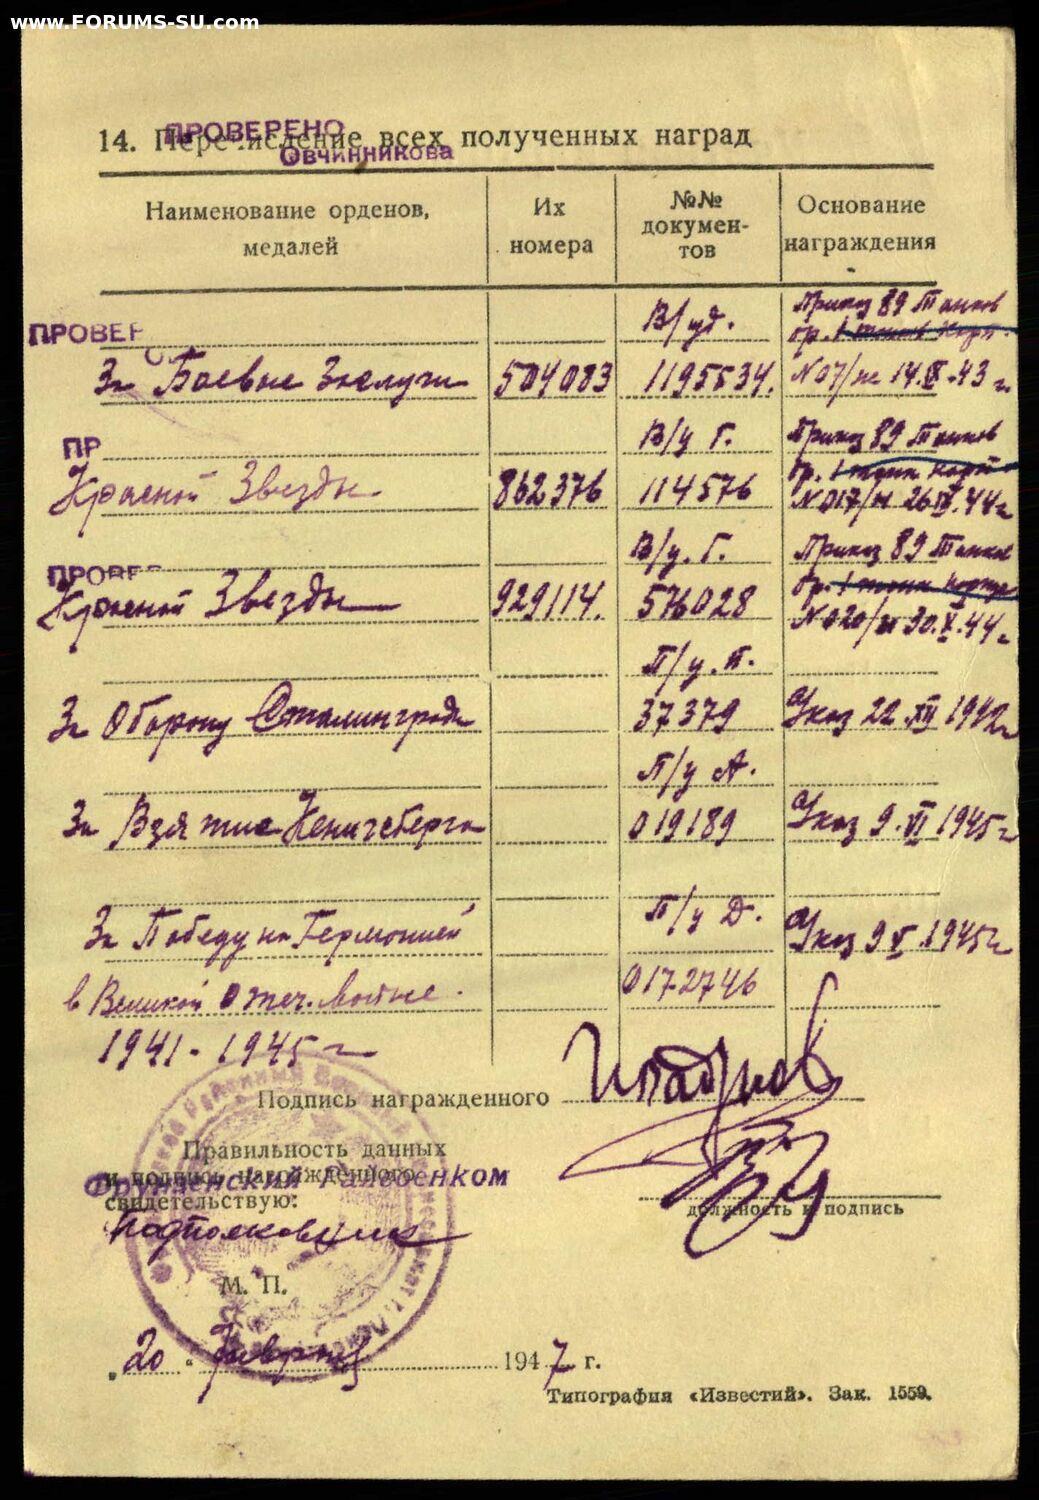 www.FORUMS-SU.com
ПРОВЕРЕНО
14. Перечисление всех полученных наград
ОВЧИННИКОВА
Наименование орденов, медалей
Их номера
№№ документов
Основание награждения
ПРОВЕР
В/уд. Приказ 89 Танков
бр. 1 танк корп.
За Боевые Заслуги 504083 1195534. N 07/н 14.IX.43 г
ПР
В/у Г. Приказ 89 Танков
бр. 1 танк корп
Красной Звезды 862376 114576 N 017/н 26.IX.44 г
ПРОВЕР
В/у. Г. Приказ 89 Танков
бр. 1 танк корпу
Красной Звезды 929114. 576028 N 020/н 30.X.44 г
П/у. П.
За Оборону Сталинграда 37379 Указ 22.XII 1942 г
П/у А.
За Взятие Кенигсберга 019189 Указ 9.VI 1945 г
П/у Д.
За Победу на Германией Указ 9 V 1945 г
в Великой Отеч. войне. 0172746
1941 - 1945 г
Подпись награжденного
Правильность данных
и подпись награжденного
Фрунзенский Райвоенком
свидетельствую:
Подполковник
должность и подпись
М. П.
„20“ февраля 1947 г.
Типография «Известий». Зак. 1559.